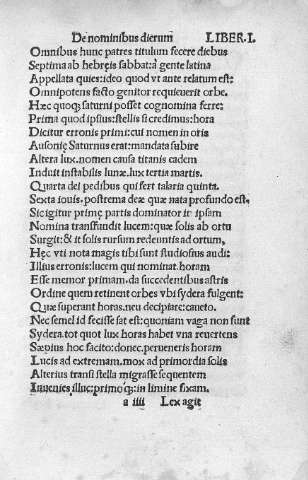 De nominibus dierum LIBER. I.
Omnibus hunc patres titulum fecere diebus
Septima ab hebręis sabbat: a gente latina
Appellata quies: ideo quod vt ante relatum est:
Omnipotens facto genitor requieuerit orbe.
Hæc quoq; saturni posset cognomina ferre:
Prima quod ipsius: stellis si credimus: hora
Dicitur erronis primi: cui nomen in oris
Ausonię Saturnus erat: mandata subire
Altera lux. nomen causa titanis eadem
Induit instabilis lunæ. lux tertia martis.
Quarta dei pedibus qui fert talaria quinta.
Sexta iouis. postrema deæ quæ nata profundo est.
Sic igitur prime partis dominator in ipsam
Nomina transfundit lucem: quæ solis ab ortu
Surgit: & it solis rursum redeuntis ad ortum,
Hęc vti nota magis tibi sunt studiosus audi:
Illius erronis: lucem qui nominat. horam
Esse memor primam. da succedentibus astris
Ordine quem retinent orbes vbi sydera fulgent:
Quæ superant horas. neu decipiare: caueto.
Nec semel id fecisse sat est: quoniam vaga non sunt
Sydera. tot quot lux horas habet vna reuertens
Sæpius hoc facito: donec perueneris horam
Lucis ad extremam. mox ad primordia solis
Alterius transi stella migrasse sequentem
Inuenies illuc: primoq; in limine fixam.
a iiii Lex agit